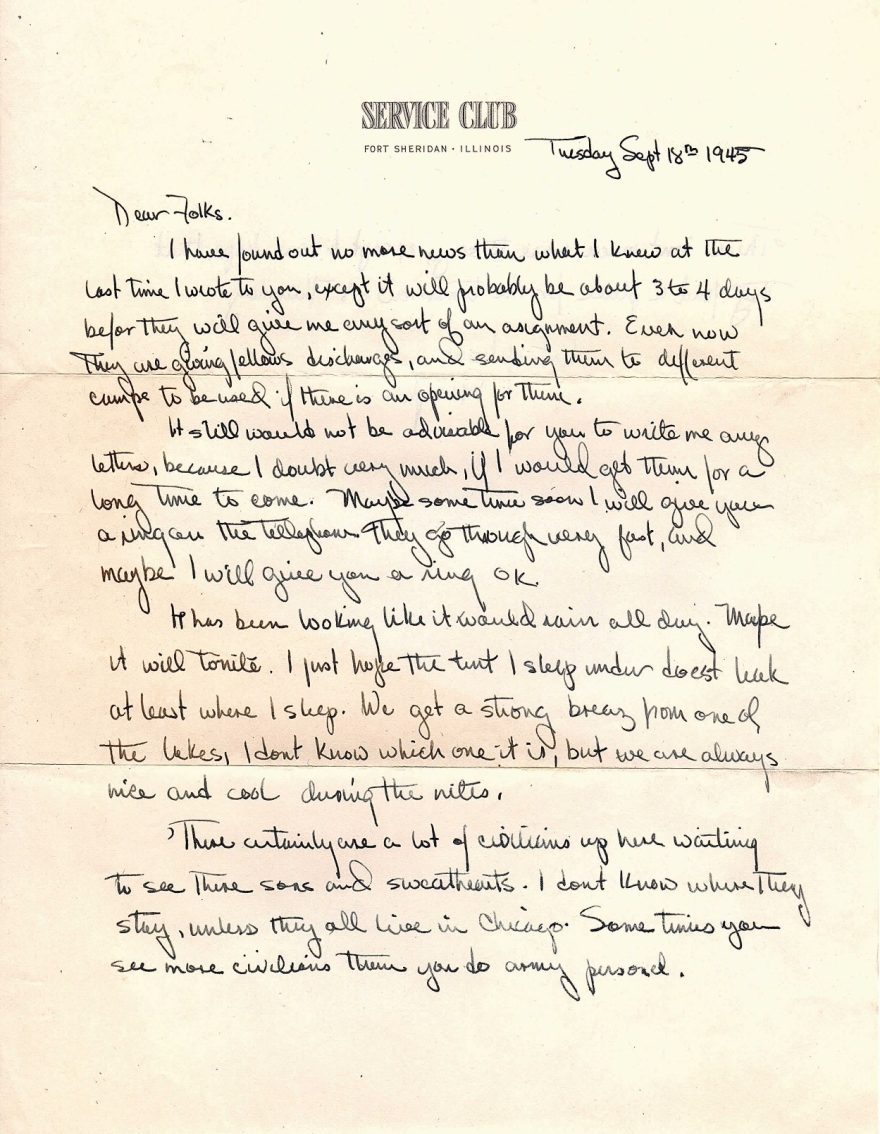 SERVICE CLUB
FORT SHERIDAN · ILLINOIS
Tuesday Sept 18th 1945
Dear Folks.
I have found out no more news than what I knew at the
last time I wrote to you, except it will probably be about 3 to 4 days
befor they will give me any sort of an assignment. Even now
they are giving fellows discharges, and sending them to different
camps to be used if there is an opening for them.
It still would not be advisable for you to write me any
letters, because I doubt very much, if I would get them for a
long time to come. Maybe some time soon I will give you
a ring on the tellephone. They go through very fast, and
maybe I will give you a ring OK.
It has been looking like it would rain all day. Maybe
it will tonite. I just hope the tent I sleep under doest leak
at least where I sleep. We get a strong breaz from one of
the lakes, I dont know which one it is, but we are always
nice and cool during the nites.
There certainly are a lot of civilians up here waiting
to see there sons and sweathearts. I dont know where they
stay, unless they all live in Chicago. Some times you
see more civilians then you do army personel.